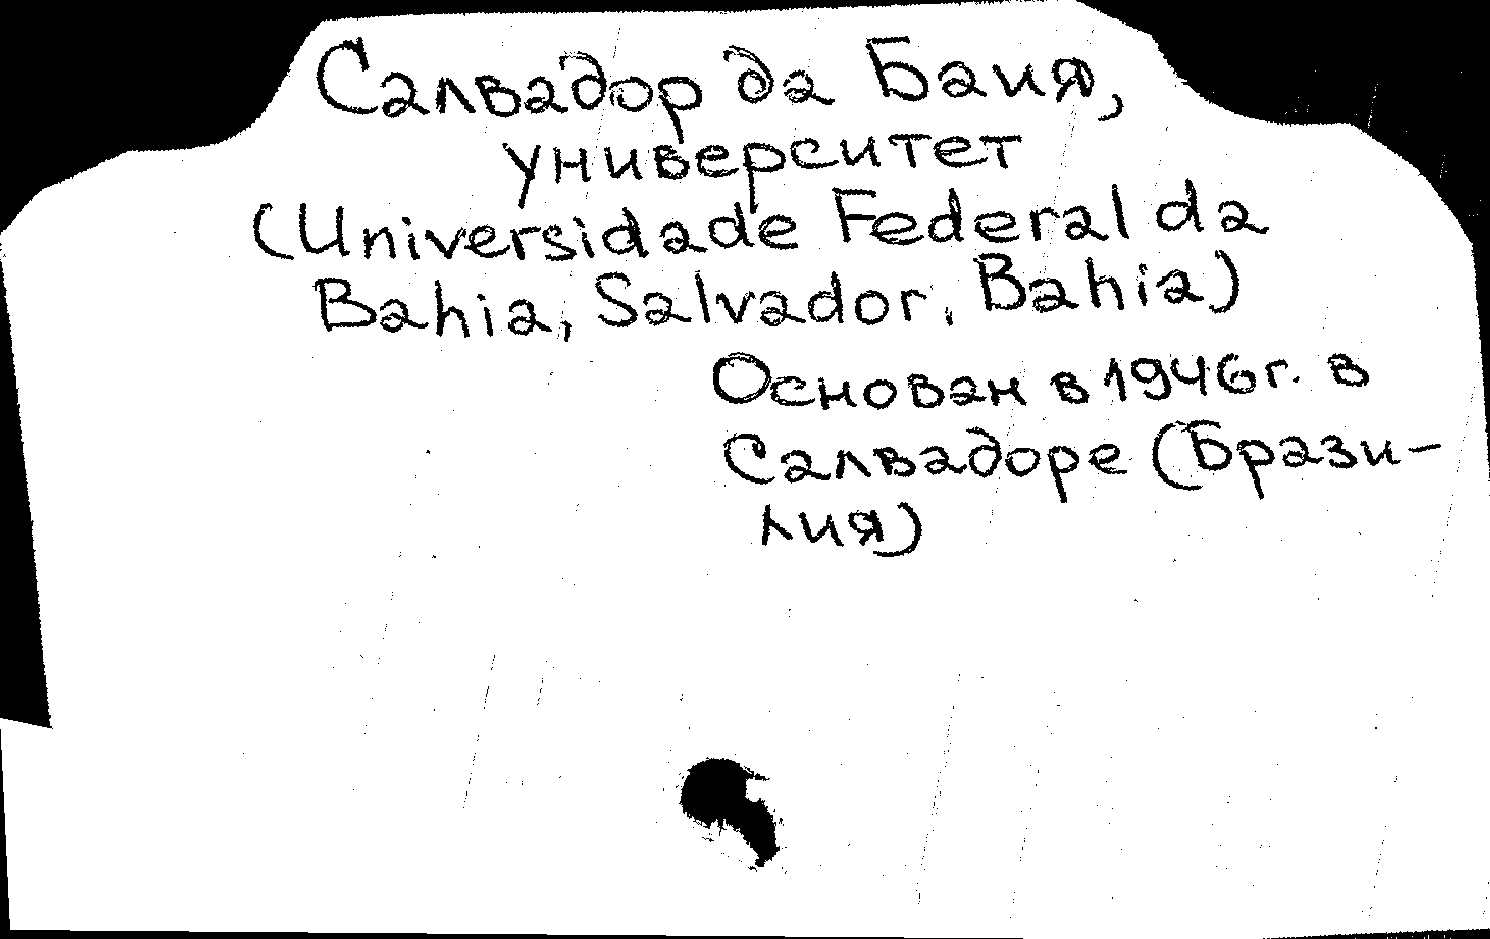 Салвадор да Баия,
университет
(Universidade Federal da
Bahia, Salvador, Bahia)
Основан в 1946г. в
Салвадоре (Брази-
лия)